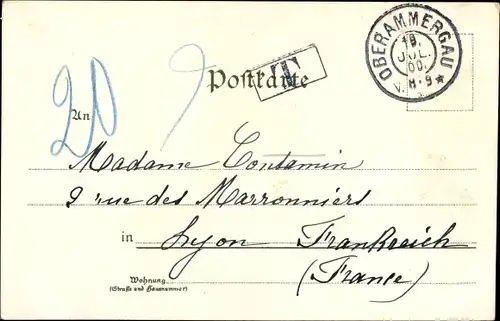 OBERAMMERGAU
18.
JUL.
00.
V. 8-9 ★
T
20
Postkarte
An
Madame Contamin
9 rue des Marronniers
in Lyon Frankreich
(France)
Wohnung
(Straße und Hausnummer)